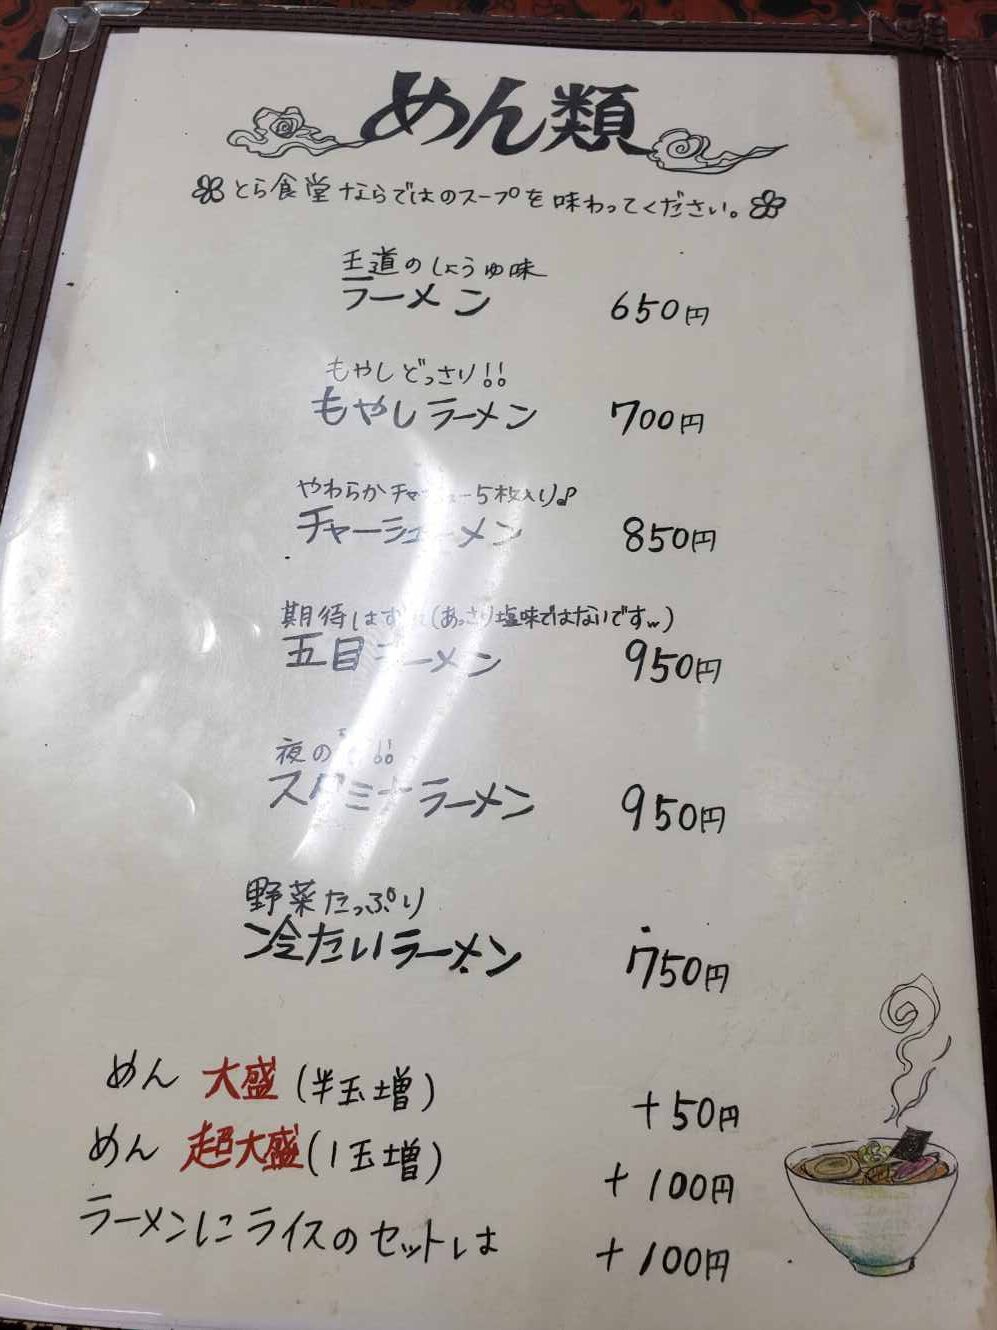 めん類
とら食堂ならではのスープを味わってください。
王道のしょうゆ味
ラーメン 650円
もやしどっさり!!
もやしラーメン 700円
やわらかチャーシュー5枚入り♪
チャーシューメン 850円
期待はずれ(あっさり塩味ではないですw)
五目ラーメン 950円
夜の !!
スタミナラーメン 950円
野菜たっぷり
冷たいラーメン 750円
めん 大盛(半玉増) +50円
めん 超大盛(1玉増) +100円
ラーメンにライスのセットは +100円